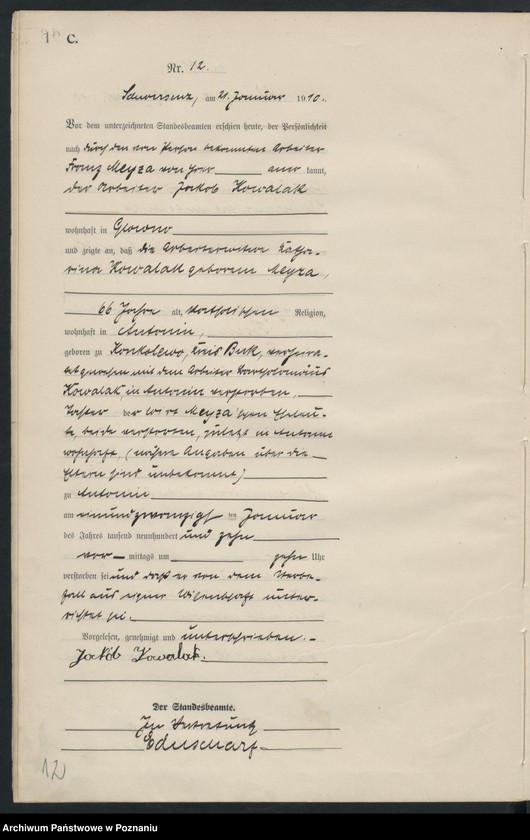 C.
Nr. 12.
Schwersenz, am 21. Januar 1910.
Vor dem unterzeichneten Standesbeamten erschien heute, der Persönlichkeit
nach durch den von Person bekannten Arbeiter
Franz Meyza von hier anerkannt,
der Arbeiter Jakob Kowalak
wohnhaft in Glowno
und zeigte an, daß die Arbeiterwitwe Katha-
rina Kowalak geborene Meyza,
66 Jahre alt, katholischen Religion,
wohnhaft in Antonin,
geboren zu Konkolewo, Kreis Buk, verheira-
tet gewesen mit dem Arbeiter Bartholomäus
Kowalak, in Antonin verstorben,
Tochter der Meyza'schen Eheleu-
te, beide verstorben, zuletzt in Antonin
wohnhaft, (nähere Angaben über die
Eltern sind unbekannt)
zu Antonin
am einundzwanzigsten Januar
des Jahres tausend neunhundert und zehn
vor mittags um zehn Uhr
verstorben sei und daß er von dem Sterbe-
fall aus eigner Wissenschaft unter-
richtet sei.
Vorgelesen, genehmigt und unterschrieben.
Jakób Kowalak.
Der Standesbeamte.
In Vertretung
12
Archiwum Państwowe w Poznaniu